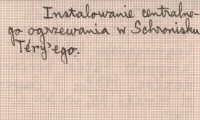 Instalowanie centralne-
go ogrzewania w Schronisku
Téry'ego.